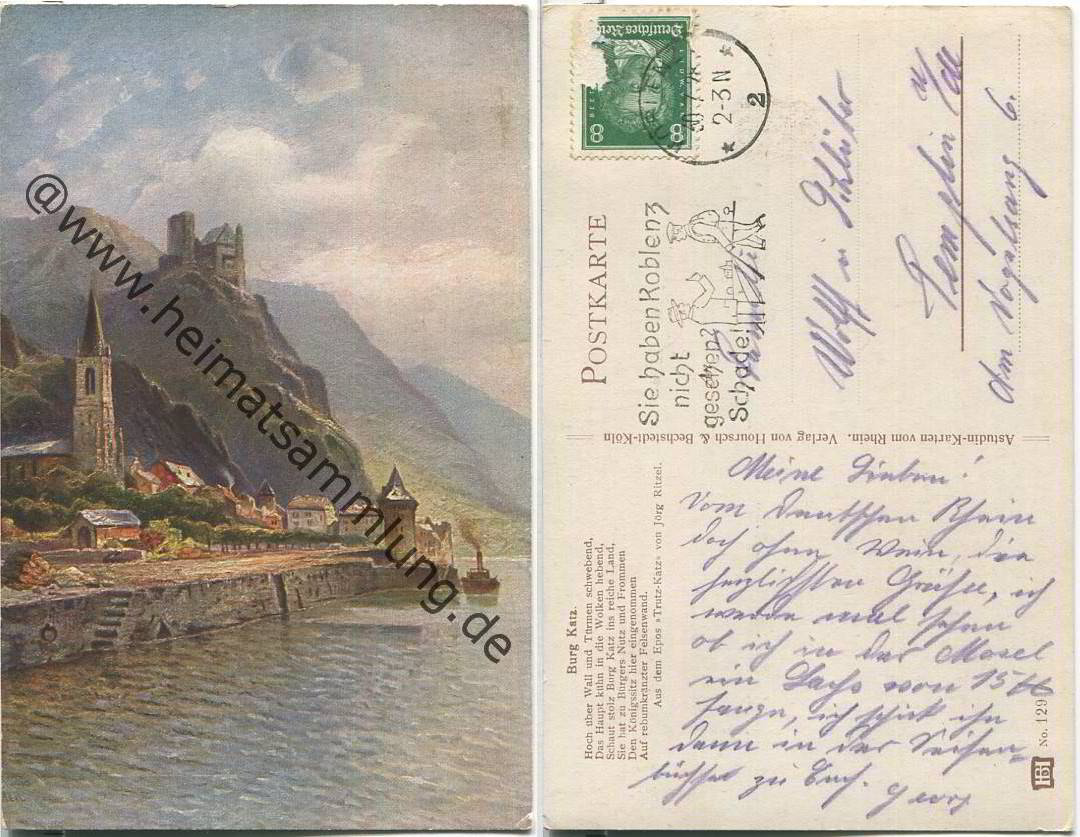 @www.heimatsammlung.de
Deutsches Reich
8 8
2-3N
2
POSTKARTE
Sie haben Koblenz
nicht
gesehen?
Schade!
Familie
Wolff u Schlüter
Templin
Am Vogelsang 6.
Astudin-Karten vom Rhein. Verlag von Hoursch & Bechstedt-Köln
Burg Katz.
Hoch über Wall und Türmen schwebend,
Das Haupt kühn in die Wolken hebend,
Schaut stolz Burg Katz ins reiche Land,
Sie hat zu Bürgers Nutz und Frommen
Den Königssitz hier eingenommen
Auf rebumkränzter Felsenwand.
Aus dem Epos »Trutz-Katz« von Jörg Ritzel.
Meine Lieben!
Vom deutschen Rhein
doch ohne Wein, die
herzlichsten Grüße, ich
werde mal sehen
ob ich in der Mosel
ein Lachs von 15
fange, ich schick ihn
dann in der Seifen-
büchse zu Euch. Georg
No. 129